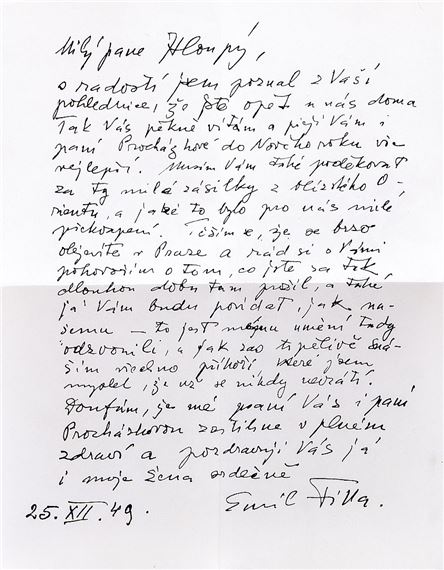 Milý pane Hloupý,
s radostí jsem poznal z Vaší
pohlednice, že jste opět u nás doma
Tak Vás pěkně vítám a přeji Vám i
paní Procházkové do Nového roku vše
nejlepší. Musím Vám také poděkovat
za ty milé zásilky z blízkého O-
rientu, a jaké to bylo pro nás milé
překvapení. Těším se, že se brzo
objevíte v Praze a rád si s Vámi
pohovořím o tom, co jste za tak
dlouhou dobu tam prožil, a také
já Vám budu povídat, jak na-
šemu – to jest mému umění tady
odzvonili, a jak zao trpělivě sná-
ším všechno příkoří, které jsem
myslel, že už se nikdy nevrátí.
Doufám, že mé psaní Vás i paní
Procházkovou zastihne v plném
zdraví a pozdravuji Vás já
i moje žena srdečně
25. XII. 49. Emil Filla.